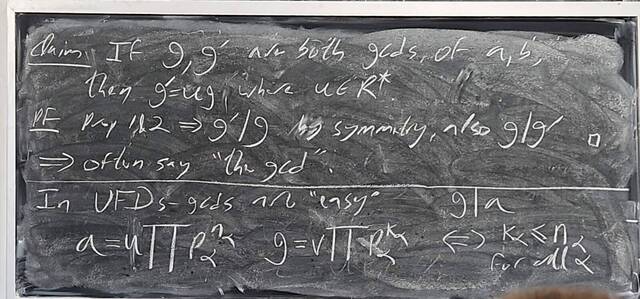 Claim If g, g' are both gcds, of a, b,
then g'=ug, where u∈R*.
Pf Prop 1&2 ⇒ g'|g by symmetry, also g|g' □
⇒ often say "the gcd".
In UFDs - gcds are "easy" g|a
a=u∏p_α^{n_α} g=v∏p_α^{k_α} ⇔ k_α≤n_α
for all α